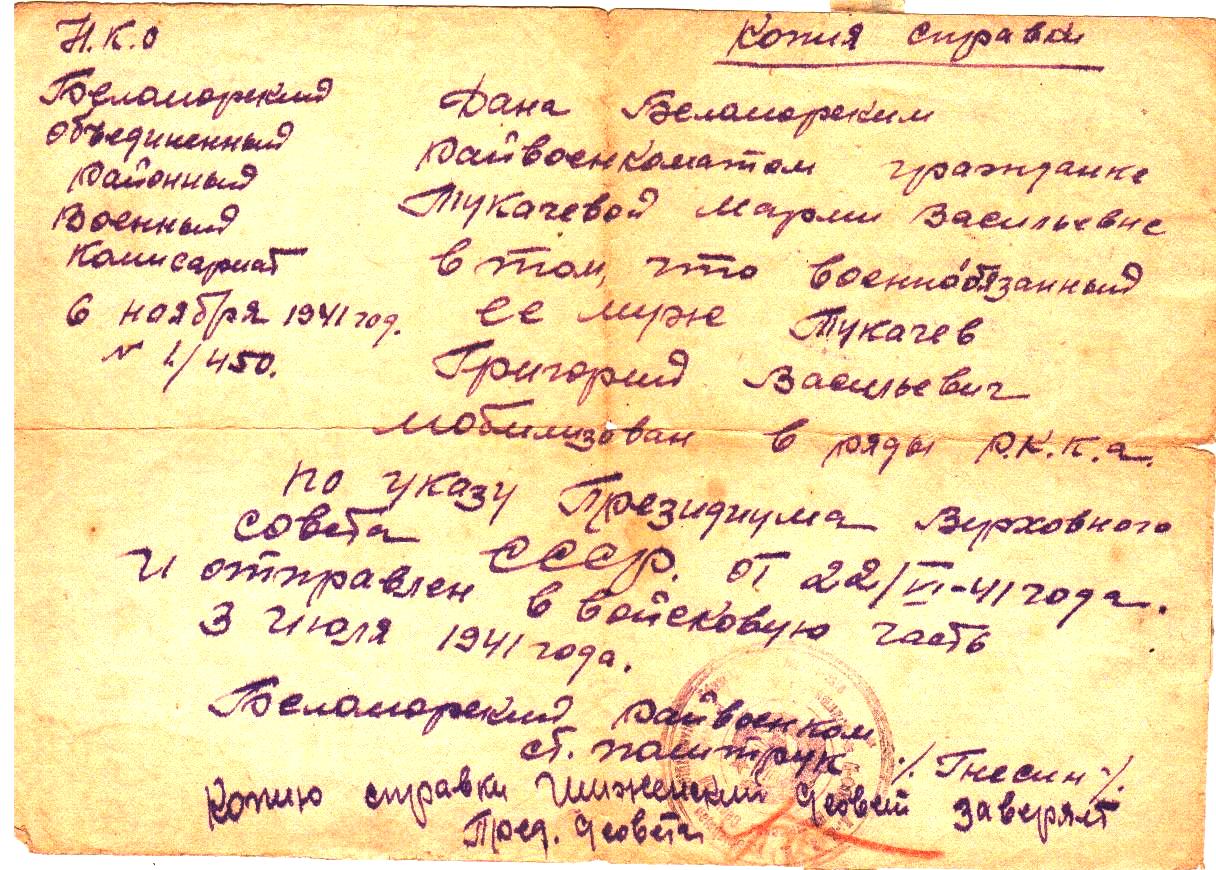 Н.К.О
Беломорский
Объединенный
Районный
Военный
Комисариат
6 ноября 1941 год.
N 1/450.
Копия справки
Дана Беломорским
Райвоенкоматом гражданке
Тукачевой Марии Васильевне
в том, что военнообязанный
ее муж Тукачев
Григорий Васильевич
мобилизован в ряды Р.К.К.А.
по указу Президиума Верховного
совета СССР. от 22/VI-41 года.
И отправлен в войсковую часть
3 Июля 1941 года.
Беломорский Райвоенком
ст. политрук /. Гнесин /.
Копию справки Шиженский с/совет заверяет
Пред. с/совета